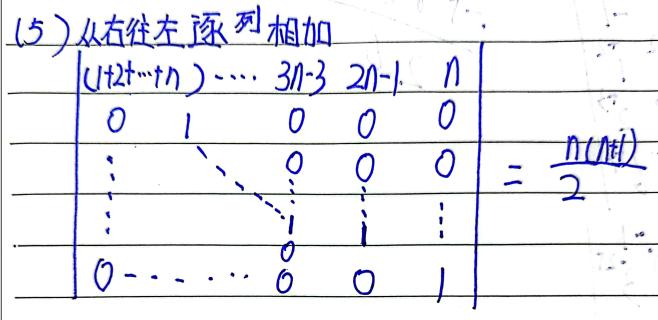 (5) 从右往左逐列相加
(1+2+…+n) ···· 3n-3 2n-1 n
0 1 0 0 0
0 0 0
1 1
0
0 - - - - ··· 0 0 1
= n(n+1)/2